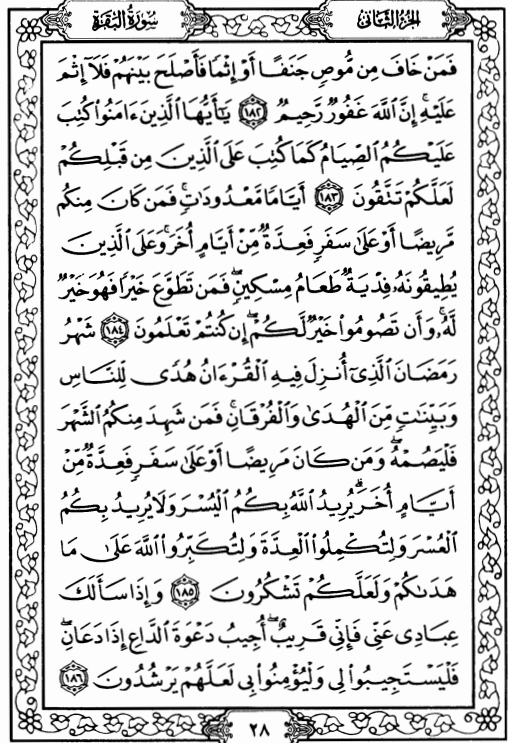 سورة البقرة
الجزء الثاني
فَمَنْ خَافَ مِن مُّوصٍ جَنَفًا أَوْ إِثْمًا فَأَصْلَحَ بَيْنَهُمْ فَلَآ إِثْمَ
عَلَيْهِ ۚ إِنَّ ٱللَّهَ غَفُورٌ رَّحِيمٌ ١٨٢ يَٰٓأَيُّهَا ٱلَّذِينَ ءَامَنُوا۟ كُتِبَ
عَلَيْكُمُ ٱلصِّيَامُ كَمَا كُتِبَ عَلَى ٱلَّذِينَ مِن قَبْلِكُمْ
لَعَلَّكُمْ تَتَّقُونَ ١٨٣ أَيَّامًا مَّعْدُودَٰتٍ ۚ فَمَن كَانَ مِنكُم
مَّرِيضًا أَوْ عَلَىٰ سَفَرٍ فَعِدَّةٌ مِّنْ أَيَّامٍ أُخَرَ ۚ وَعَلَى ٱلَّذِينَ
يُطِيقُونَهُۥ فِدْيَةٌ طَعَامُ مِسْكِينٍ ۖ فَمَن تَطَوَّعَ خَيْرًا فَهُوَ خَيْرٌ
لَّهُۥ ۚ وَأَن تَصُومُوا۟ خَيْرٌ لَّكُمْ ۖ إِن كُنتُمْ تَعْلَمُونَ ١٨٤ شَهْرُ
رَمَضَانَ ٱلَّذِىٓ أُنزِلَ فِيهِ ٱلْقُرْءَانُ هُدًى لِّلنَّاسِ
وَبَيِّنَٰتٍ مِّنَ ٱلْهُدَىٰ وَٱلْفُرْقَانِ ۚ فَمَن شَهِدَ مِنكُمُ ٱلشَّهْرَ
فَلْيَصُمْهُ ۖ وَمَن كَانَ مَرِيضًا أَوْ عَلَىٰ سَفَرٍ فَعِدَّةٌ مِّنْ
أَيَّامٍ أُخَرَ ۗ يُرِيدُ ٱللَّهُ بِكُمُ ٱلْيُسْرَ وَلَا يُرِيدُ بِكُمُ
ٱلْعُسْرَ وَلِتُكْمِلُوا۟ ٱلْعِدَّةَ وَلِتُكَبِّرُوا۟ ٱللَّهَ عَلَىٰ مَا
هَدَىٰكُمْ وَلَعَلَّكُمْ تَشْكُرُونَ ١٨٥ وَإِذَا سَأَلَكَ
عِبَادِى عَنِّى فَإِنِّى قَرِيبٌ ۖ أُجِيبُ دَعْوَةَ ٱلدَّاعِ إِذَا دَعَانِ ۖ
فَلْيَسْتَجِيبُوا۟ لِى وَلْيُؤْمِنُوا۟ بِى لَعَلَّهُمْ يَرْشُدُونَ ١٨٦
٢٨